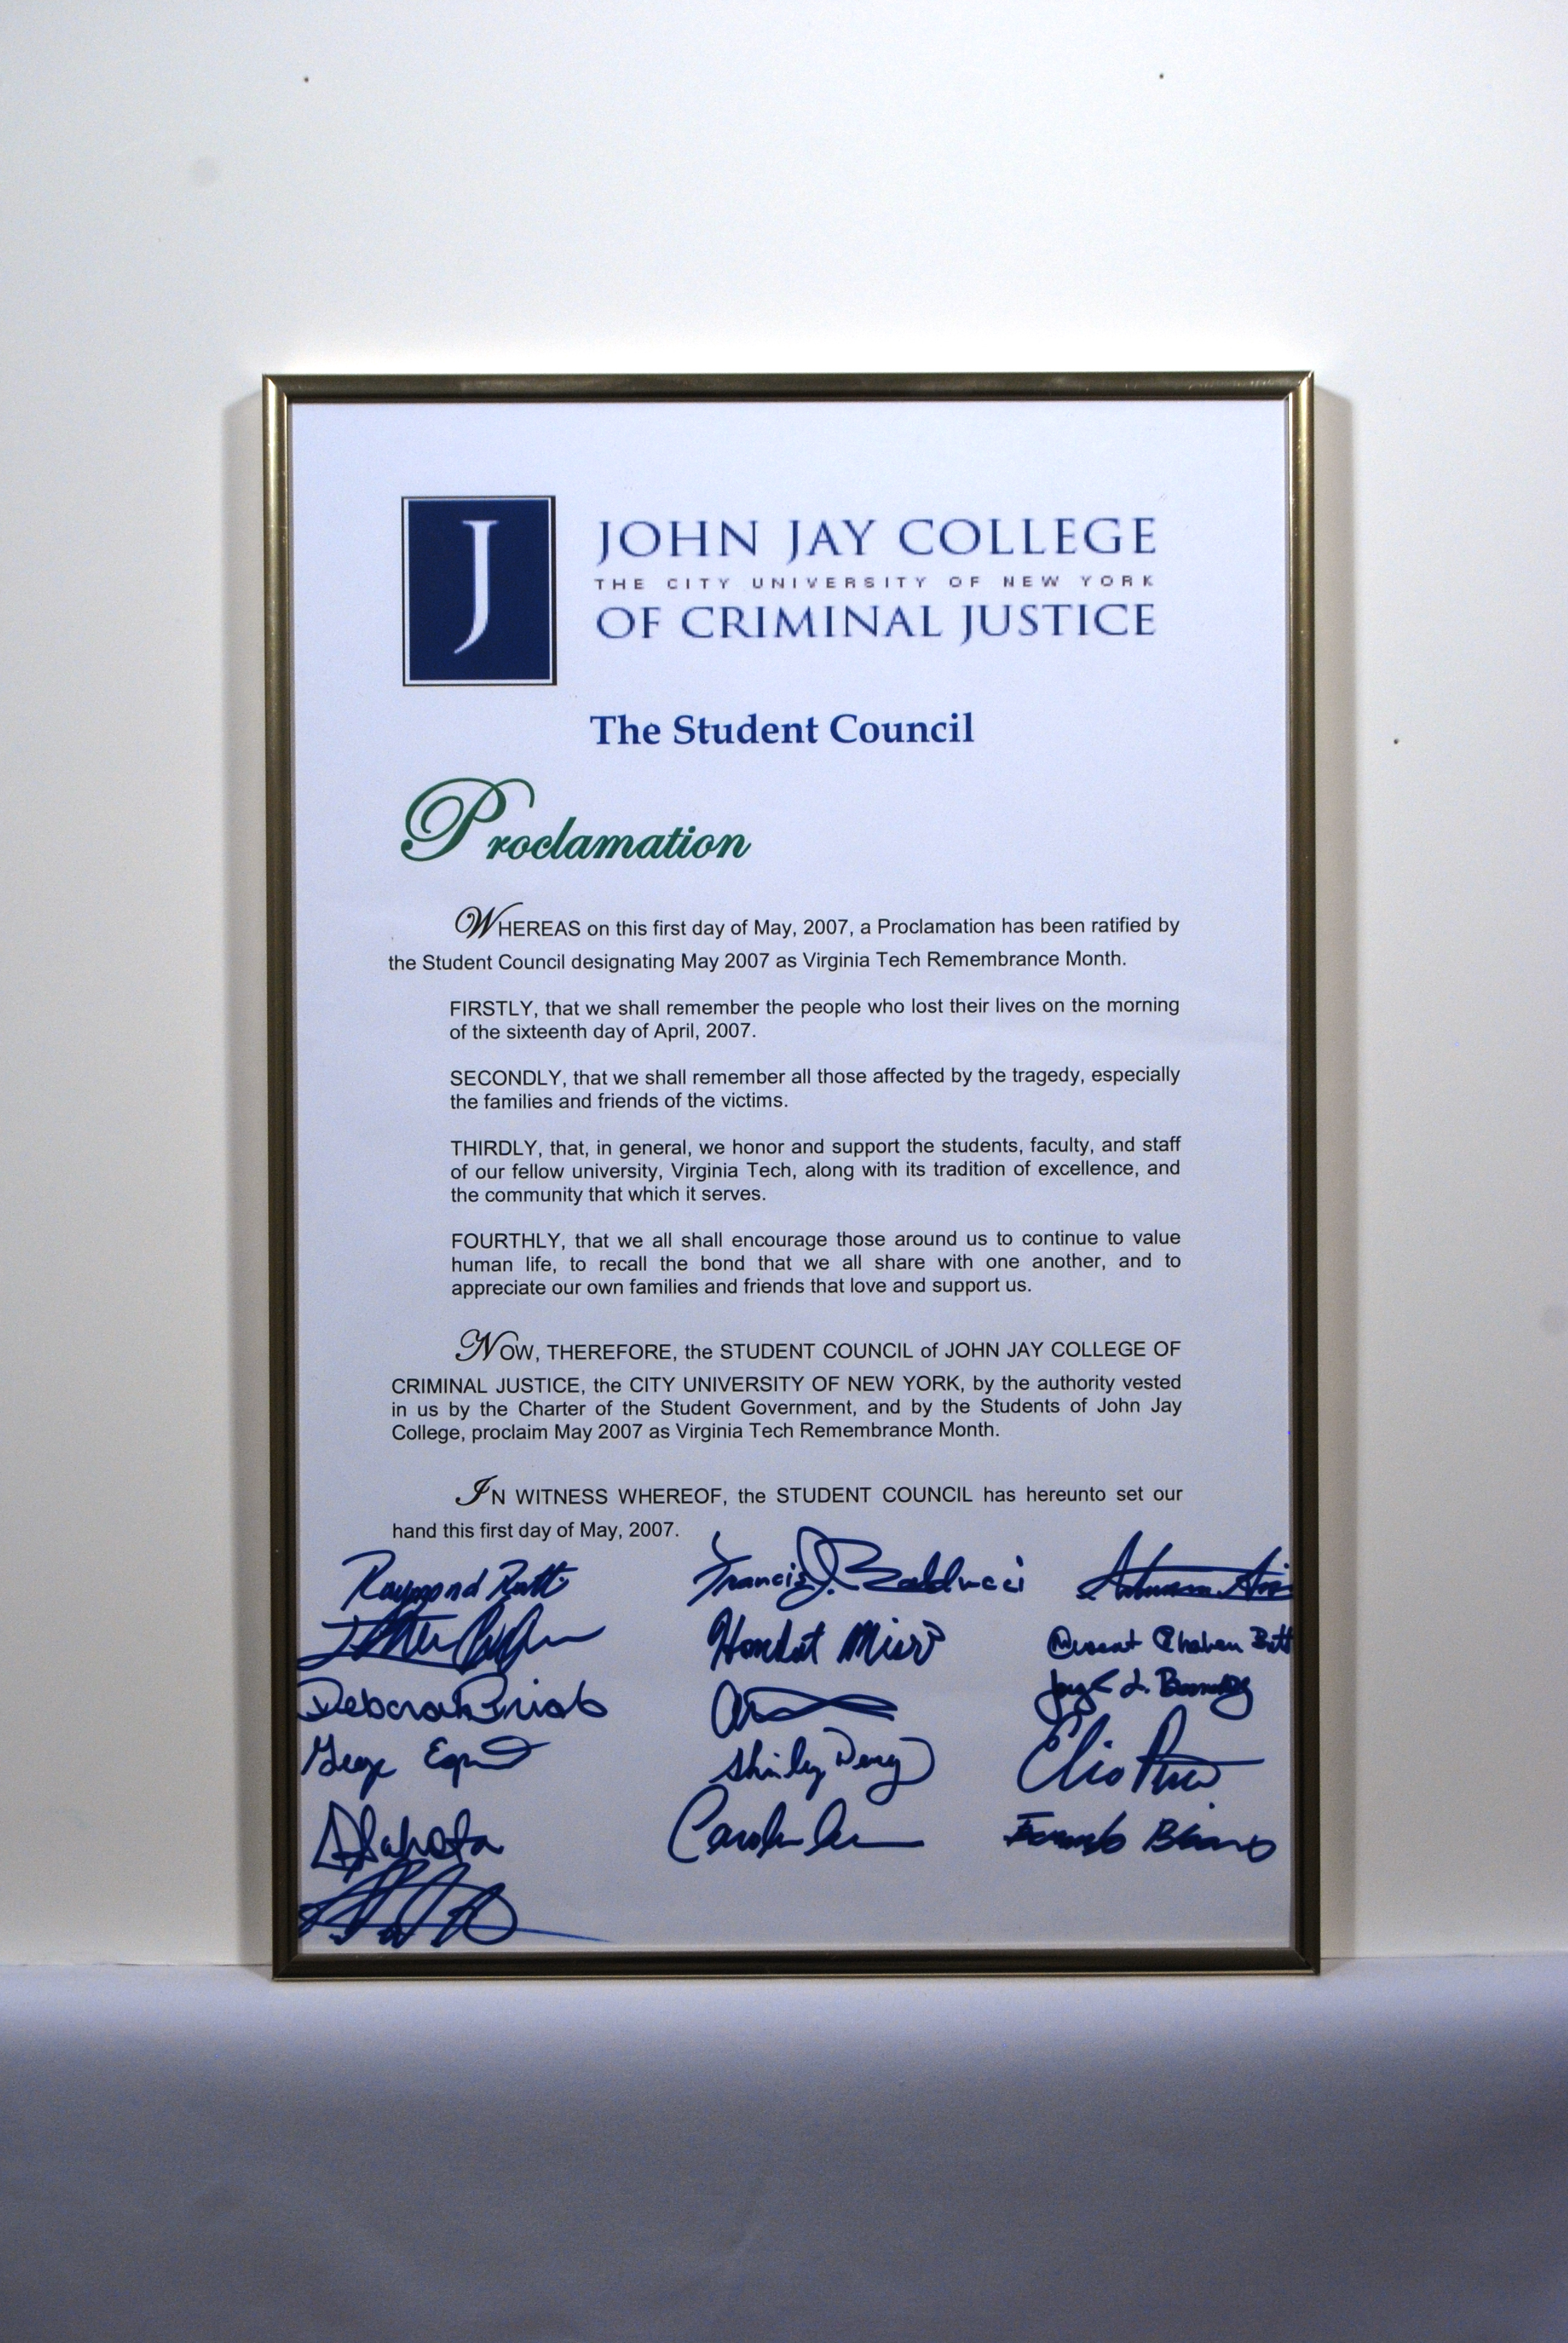 J
JOHN JAY COLLEGE
THE CITY UNIVERSITY OF NEW YORK
OF CRIMINAL JUSTICE
The Student Council
Proclamation
WHEREAS on this first day of May, 2007, a Proclamation has been ratified by
the Student Council designating May 2007 as Virginia Tech Remembrance Month.
FIRSTLY, that we shall remember the people who lost their lives on the morning
of the sixteenth day of April, 2007.
SECONDLY, that we shall remember all those affected by the tragedy, especially
the families and friends of the victims.
THIRDLY, that, in general, we honor and support the students, faculty, and staff
of our fellow university, Virginia Tech, along with its tradition of excellence, and
the community that which it serves.
FOURTHLY, that we all shall encourage those around us to continue to value
human life, to recall the bond that we all share with one another, and to
appreciate our own families and friends that love and support us.
NOW, THEREFORE, the STUDENT COUNCIL of JOHN JAY COLLEGE OF
CRIMINAL JUSTICE, the CITY UNIVERSITY OF NEW YORK, by the authority vested
in us by the Charter of the Student Government, and by the Students of John Jay
College, proclaim May 2007 as Virginia Tech Remembrance Month.
IN WITNESS WHEREOF, the STUDENT COUNCIL has hereunto set our
hand this first day of May, 2007.
Raymond
Francis J. Balducci
Deborah
Shirley
Elio